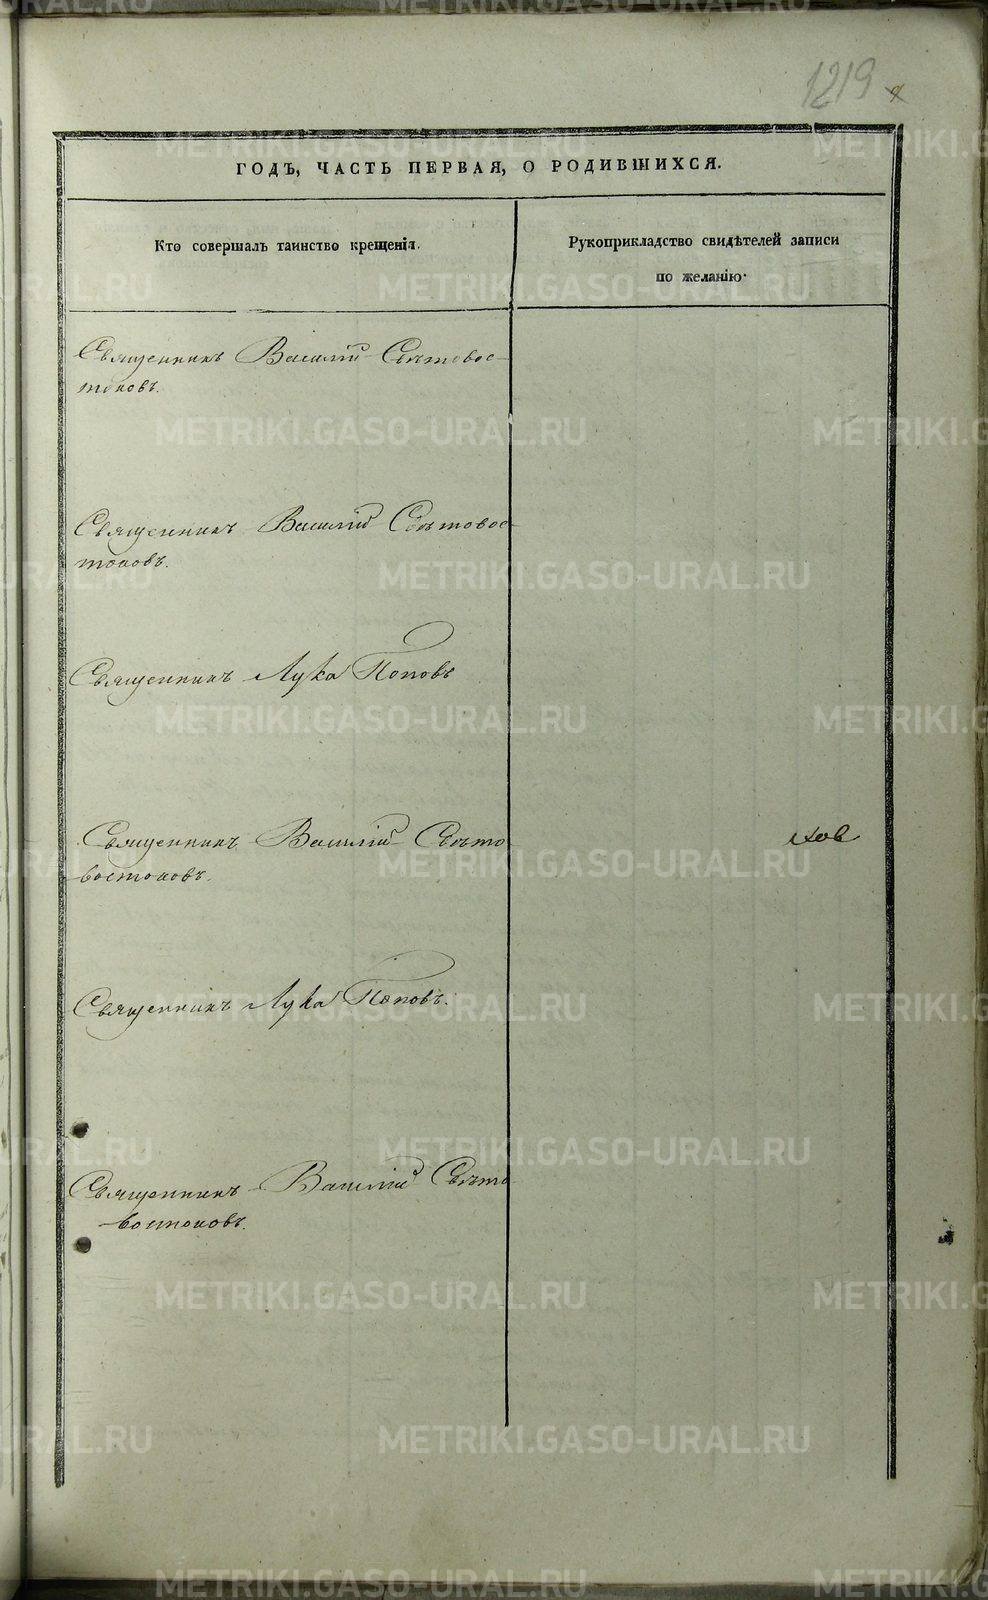 1219
ГОДЪ, ЧАСТЬ ПЕРВАЯ, О РОДИВШИХСЯ.
Кто совершалъ таинство крещенія.
Рукоприкладство свидѣтелей записи
по желанію.
Священникъ Василій Свѣтовос-
токовъ.
Священникъ Василій Свѣтовос-
токовъ.
Священникъ Лука Поповъ
Священникъ Василій Свѣто
востоковъ.
ков
Священникъ Лука Поповъ.
Священникъ Василій Свѣто
востоковъ.
METRIKI.GASO-URAL.RU